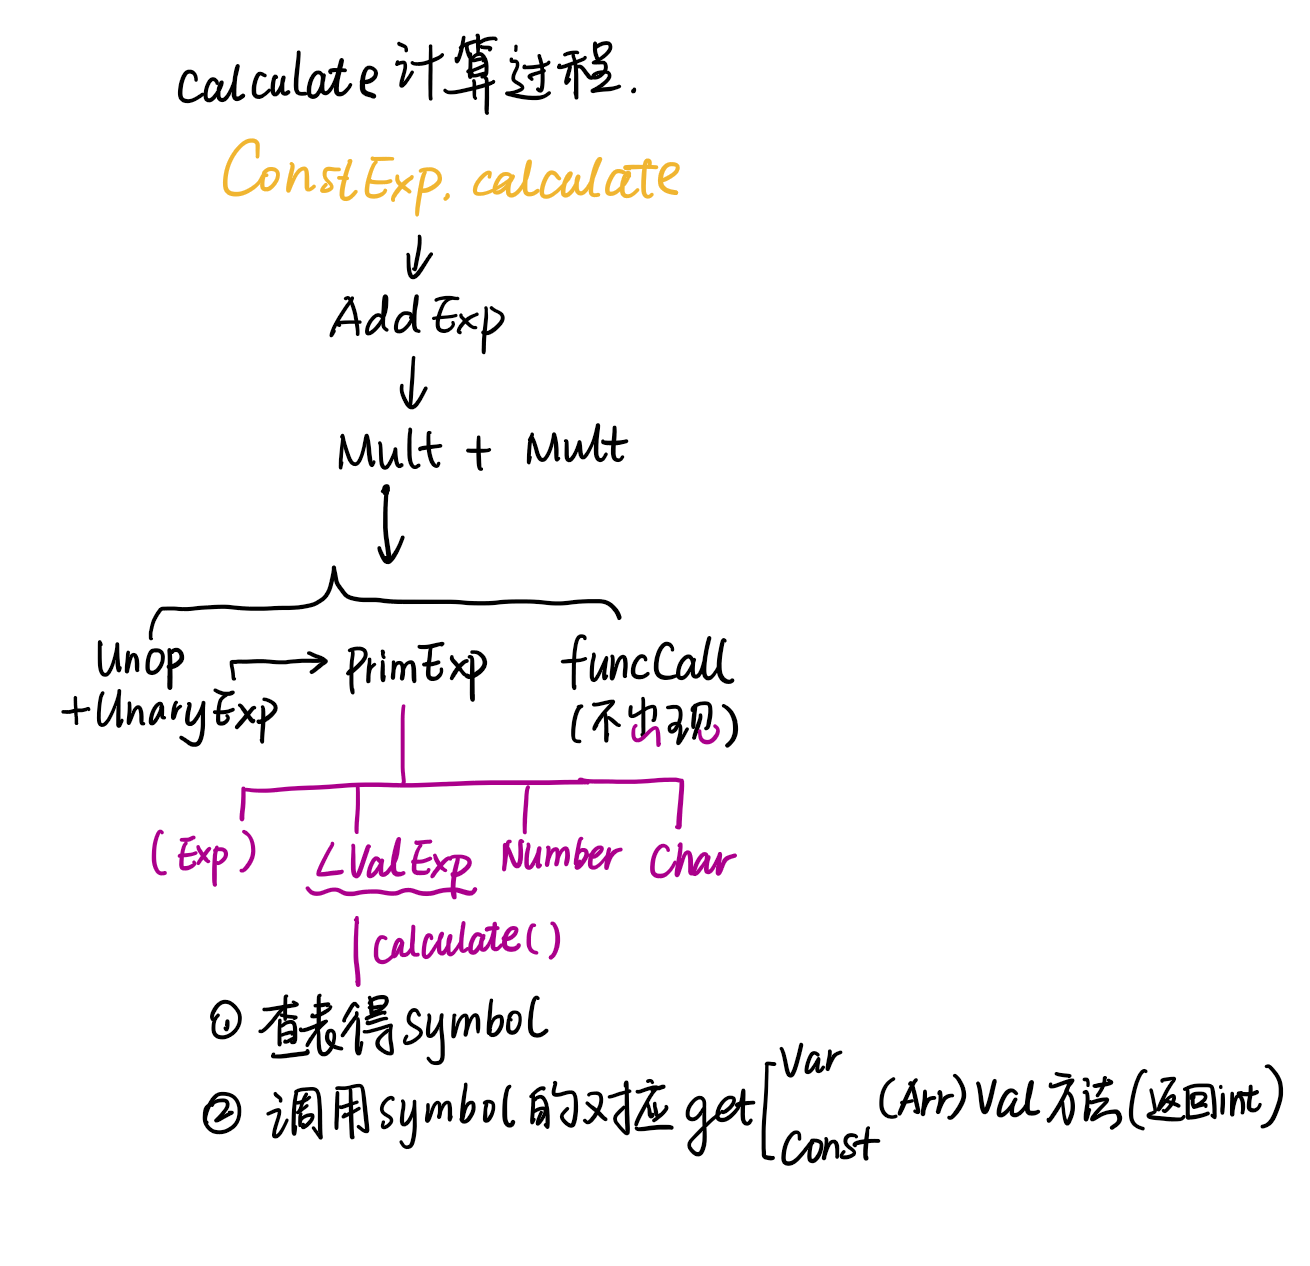 calculate 计算过程.
ConstExp. calculate
AddExp
Mult + Mult
Unop
+UnaryExp
PrimExp
funcCall
(不出现)
(Exp)
LValExp
Number
Char
calculate()
① 查表得symbol
② 调用symbol的对应get
Var
Const
(Arr)Val方法(返回int)